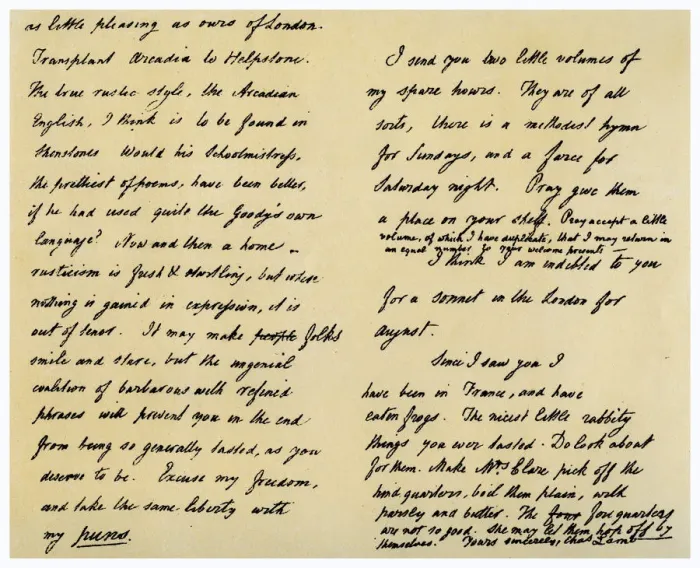 as little pleasing as ours of London.
Transplant Arcadia to Helpstone.
The true rustic style, the Arcadian
English, I think is to be found in
Shenstones Would his Schoolmistress,
the prettiest of poems, have been better,
if he had used quite the Goody's own
language? Now and then a home
rusticism is fresh & startling, but where
nothing is gained in expression, it is
out of tenor. It may make people folks
smile and stare, but the ungenial
coalition of barbarous with refined
phrases will prevent you in the end
from being so generally tasted, as you
deserve to be. Excuse my freedom,
and take the same liberty with
my puns.
I send you two little volumes of
my spare hours. They are of all
sorts, there is a methodist hymn
for Sundays, and a farce for
Saturday night. Pray give them
a place on your shelf. Pray accept a little
volume, of which I have duplicate, that I may return in
an equal number to your welcome presents —
I think I am indebted to you
for a sonnet in the London for
August.
Since I saw you I
have been in France, and have
eaten frogs. The nicest little rabbity
things you ever tasted. Do look about
for them. Make Mrs. Clare pick off the
hind quarters, boil them plain, with
parsley and butter. The four fore quarters
are not so good. She may let them hop off by
themselves. Yours sincerely, Chas Lamb